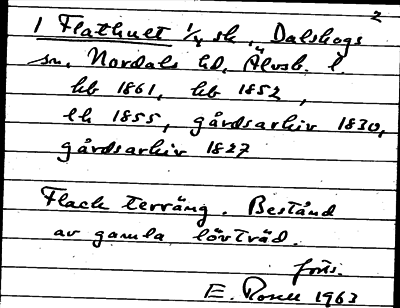 2
1 Flathult 1/4 sk, Dalskogs
sn, Nordals hd, Älvsb. l.
hb 1861, hb 1852,
lk 1855, gårdsarkiv 1830,
gårdsarkiv 1827
Flack terräng. Bestånd
av gamla lövträd.
forts.
E. Rosell 1963